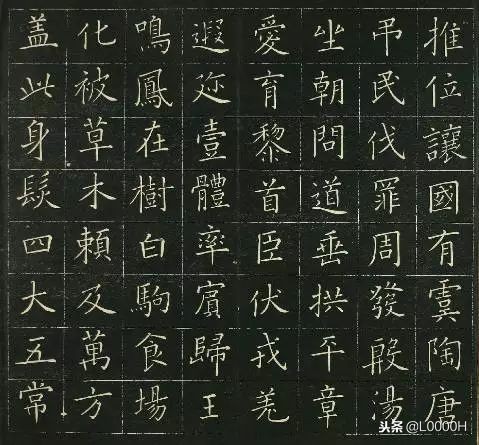 推位讓國有虞陶唐
弔民伐罪周發殷湯
坐朝問道垂拱平章
愛育黎首臣伏戎羌
遐迩壹體率賓歸王
鳴鳳在樹白駒食場
化被草木賴及萬方
蓋此身髮四大五常
头条 @L0000H